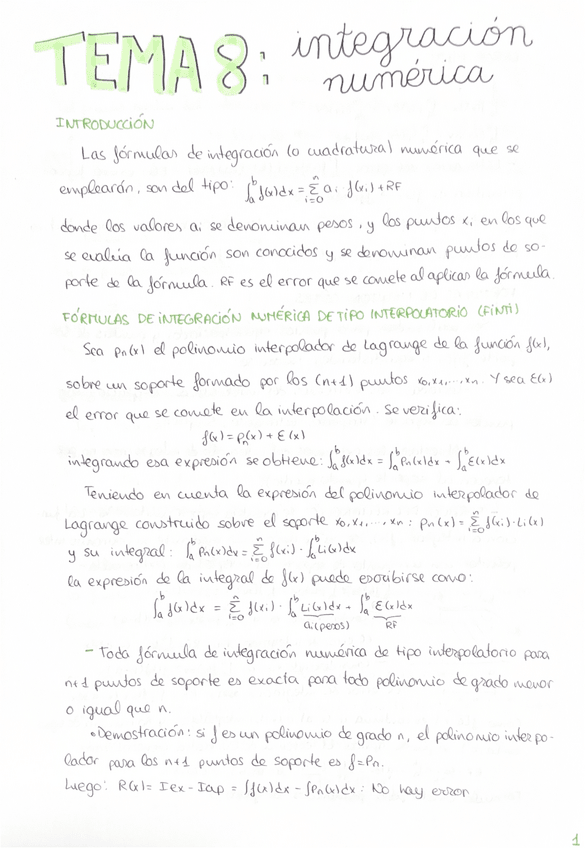 TEMA 8: integración
numérica
INTRODUCCIÓN
Las fórmulas de integración (o cuadratura) numérica que se
emplearán, son del tipo: ∫_a^b f(x)dx = Σ_{i=0}^n a_i f(x_i) + RF
donde los valores a_i se denominan pesos, y los puntos x_i en los que
se evalúa la función son conocidos y se denominan puntos de so-
porte de la fórmula. RF es el error que se comete al aplicar la fórmula.
FÓRMULAS DE INTEGRACIÓN NUMÉRICA DE TIPO INTERPOLATORIO (FINTI)
Sea pn(x) el polinomio interpolador de Lagrange de la función f(x),
sobre un soporte formado por los (n+1) puntos x0, x1, ..., xn. Y sea ε(x)
el error que se comete en la interpolación. Se verifica:
f(x) = pn(x) + ε(x)
integrando esa expresión se obtiene: ∫_a^b f(x)dx = ∫_a^b pn(x)dx + ∫_a^b ε(x)dx
Teniendo en cuenta la expresión del polinomio interpolador de
Lagrange construido sobre el soporte x0, x1, ..., xn: pn(x) = Σ_{i=0}^n f(xi)·Li(x)
y su integral: ∫_a^b pn(x)dx = Σ_{i=0}^n f(xi)·∫_a^b Li(x)dx
la expresión de la integral de f(x) puede escribirse como:
∫_a^b f(x)dx = Σ_{i=0}^n f(xi)·∫_a^b Li(x)dx + ∫_a^b ε(x)dx
ai (pesos) RF
- Toda fórmula de integración numérica de tipo interpolatorio para
n+1 puntos de soporte es exacta para todo polinomio de grado menor
o igual que n.
•Demostración: si f es un polinomio de grado n, el polinomio interpo-
lador para los n+1 puntos de soporte es f=Pn.
Luego: R(x)= Iex - Iap = ∫f(x)dx - ∫Pn(x)dx : No hay error
1